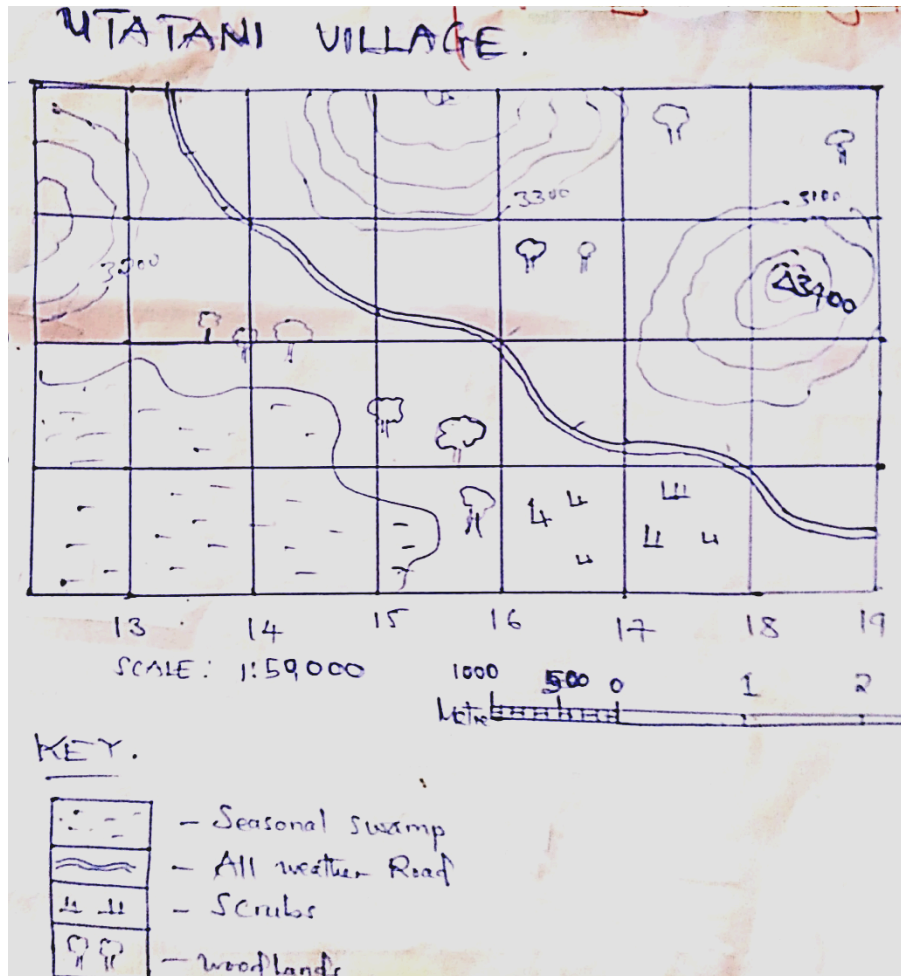 UTATANI VILLAGE.
3300
3100
△3400
13 14 15 16 17 18 19
SCALE: 1:50,000
1000 500 0 1 2
Metre
KEY.
- Seasonal swamp
- All weather Road
- Scrubs
- woodlands